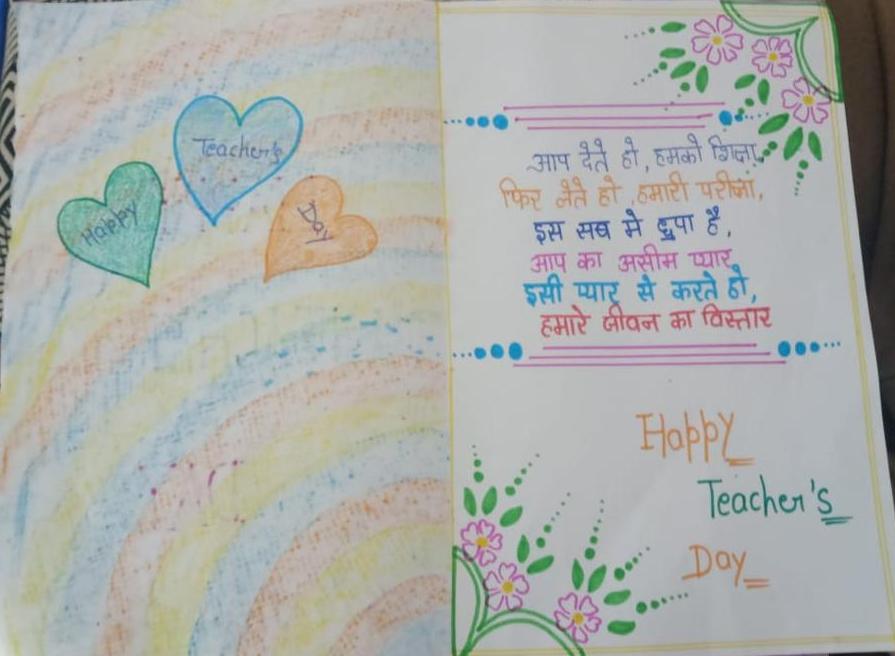 Happy
Teacher's
Day
आप देते हो, हमको शिक्षा,
फिर लेते हो, हमारी परीक्षा,
इस सब में छुपा है,
आप का असीम प्यार
इसी प्यार से करते हो,
हमारे जीवन का विस्तार
Happy
Teacher's
Day